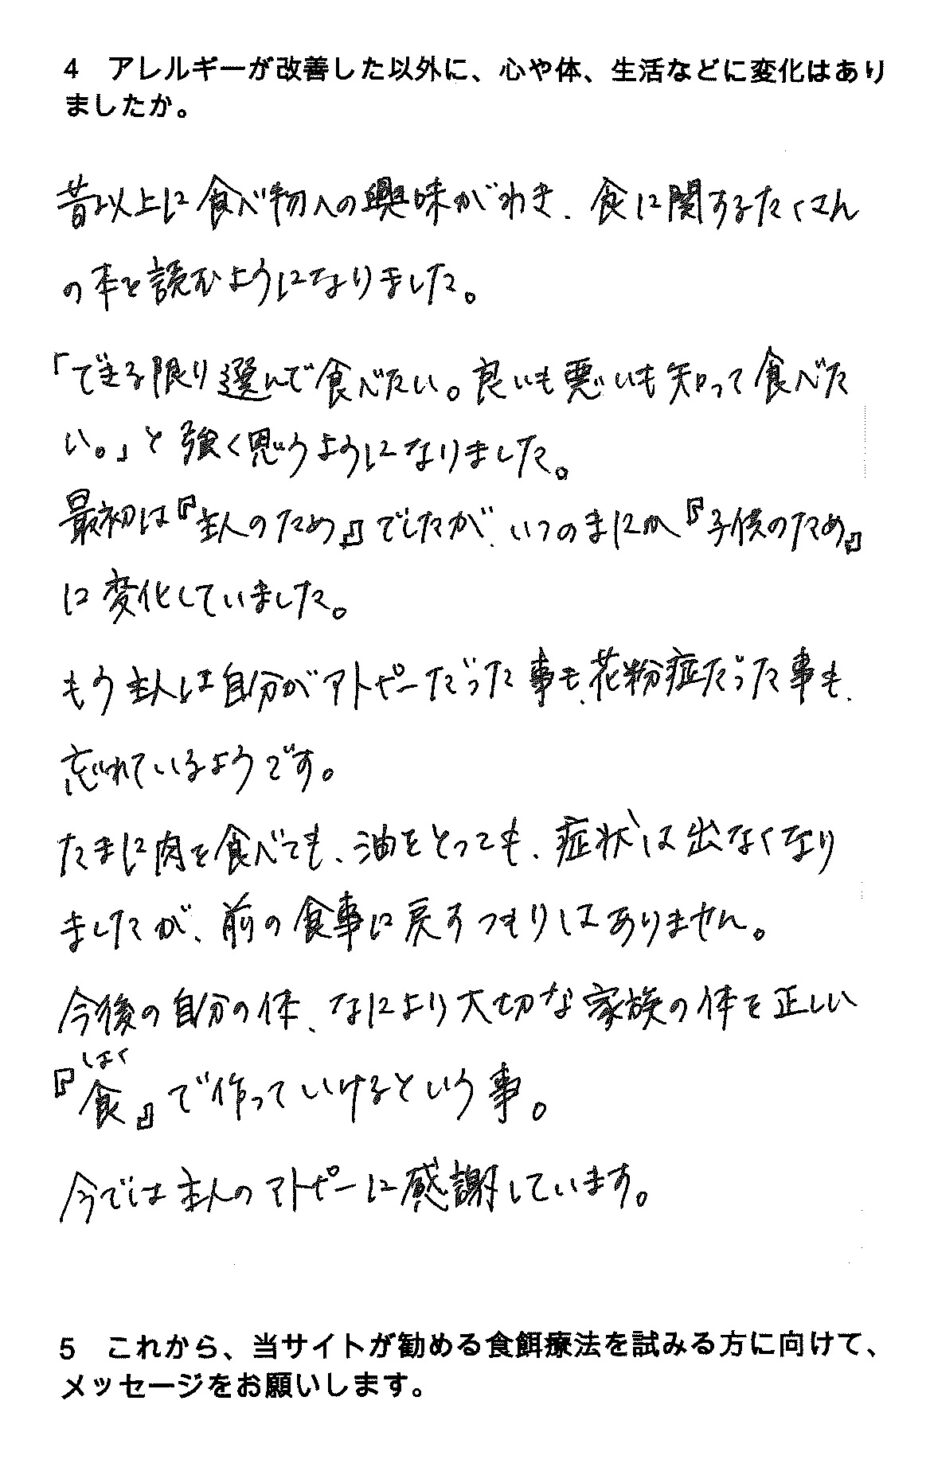 4　アレルギーが改善した以外に、心や体、生活などに変化はあり
ましたか。
昔以上に食べ物への興味がわき、食に関するたくさん
の本を読むようになりました。
「できる限り選んで食べたい。良いも悪いも知って食べた
い。」と強く思うようになりました。
最初は『主人のため』でしたが、いつのまにか『子供のため』
に変化していました。
もう主人は自分がアトピーだった事も、花粉症だった事も、
忘れているようです。
たまに肉を食べても、油をとっても、症状は出なくなり
ましたが、前の食事に戻すつもりはありません。
今後の自分の体、なにより大切な家族の体を正しい
しょく
『食』で作っていけるという事。
今では主人のアトピーに感謝しています。
5　これから、当サイトが勧める食餌療法を試みる方に向けて、
メッセージをお願いします。